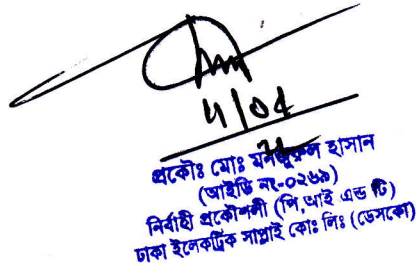 ৭/০৫
প্রকৌঃ মোঃ মনজুরুল হাসান
(আইডি নং-০২৬৯)
নির্বাহী প্রকৌশলী (পি,আই এন্ড টি)
ঢাকা ইলেকট্রিক সাপ্লাই কোঃ লিঃ (ডেসকো)